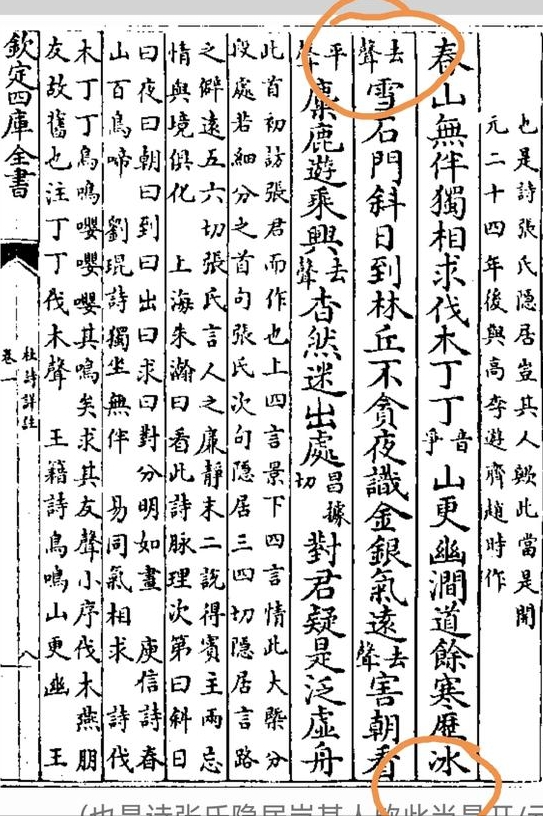 也是詩張氏隱居豈其人歟此當是開
元二十四年後與高李遊齊趙時作
春山無伴獨相求伐木丁丁音爭山更幽澗道餘寒歷冰
去聲雪石門斜日到林丘不貪夜識金銀氣遠去聲害朝看
平聲麋鹿遊乘興去聲杳然迷出處昌據切對君疑是泛虛舟
此首初訪張君而作也上四言景下四言情此大槩分
段處若細分之首句張氏次句隱居三四切隱居言路
之僻遠五六切張氏言人之廉靜末二說得賓主兩忘
情與境俱化 上海朱瀚曰看此詩脈理次第曰斜日
曰夜曰朝曰到曰出曰求曰對分明如畫 庾信詩春
山百鳥啼 劉琨詩獨坐無伴 易同氣相求 詩伐
木丁丁鳥鳴嚶嚶嚶其鳴矣求其友聲小序伐木燕朋
友故舊也注丁丁伐木聲 王籍詩鳥鳴山更幽 王
欽定四庫全書
杜詩詳註
卷一
八
(也是诗张氏隐居岂其人欤此当是开/元